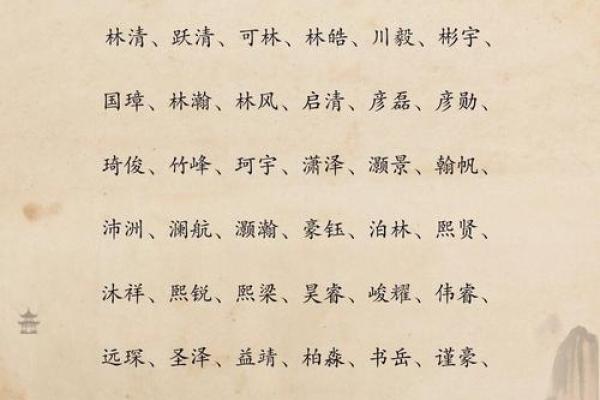 林清、跃清、可林、林皓、川毅、彬宇、
国璋、林瀚、林风、启清、彦磊、彦勋、
琦俊、竹峰、珂宇、潇泽、灏景、翰帆、
沛洲、澜航、灏瀚、豪钰、泊林、熙贤、
沐祥、熙锐、熙梁、昊睿、峻耀、伟睿、
远琛、圣泽、益靖、柏淼、书岳、谨豪、